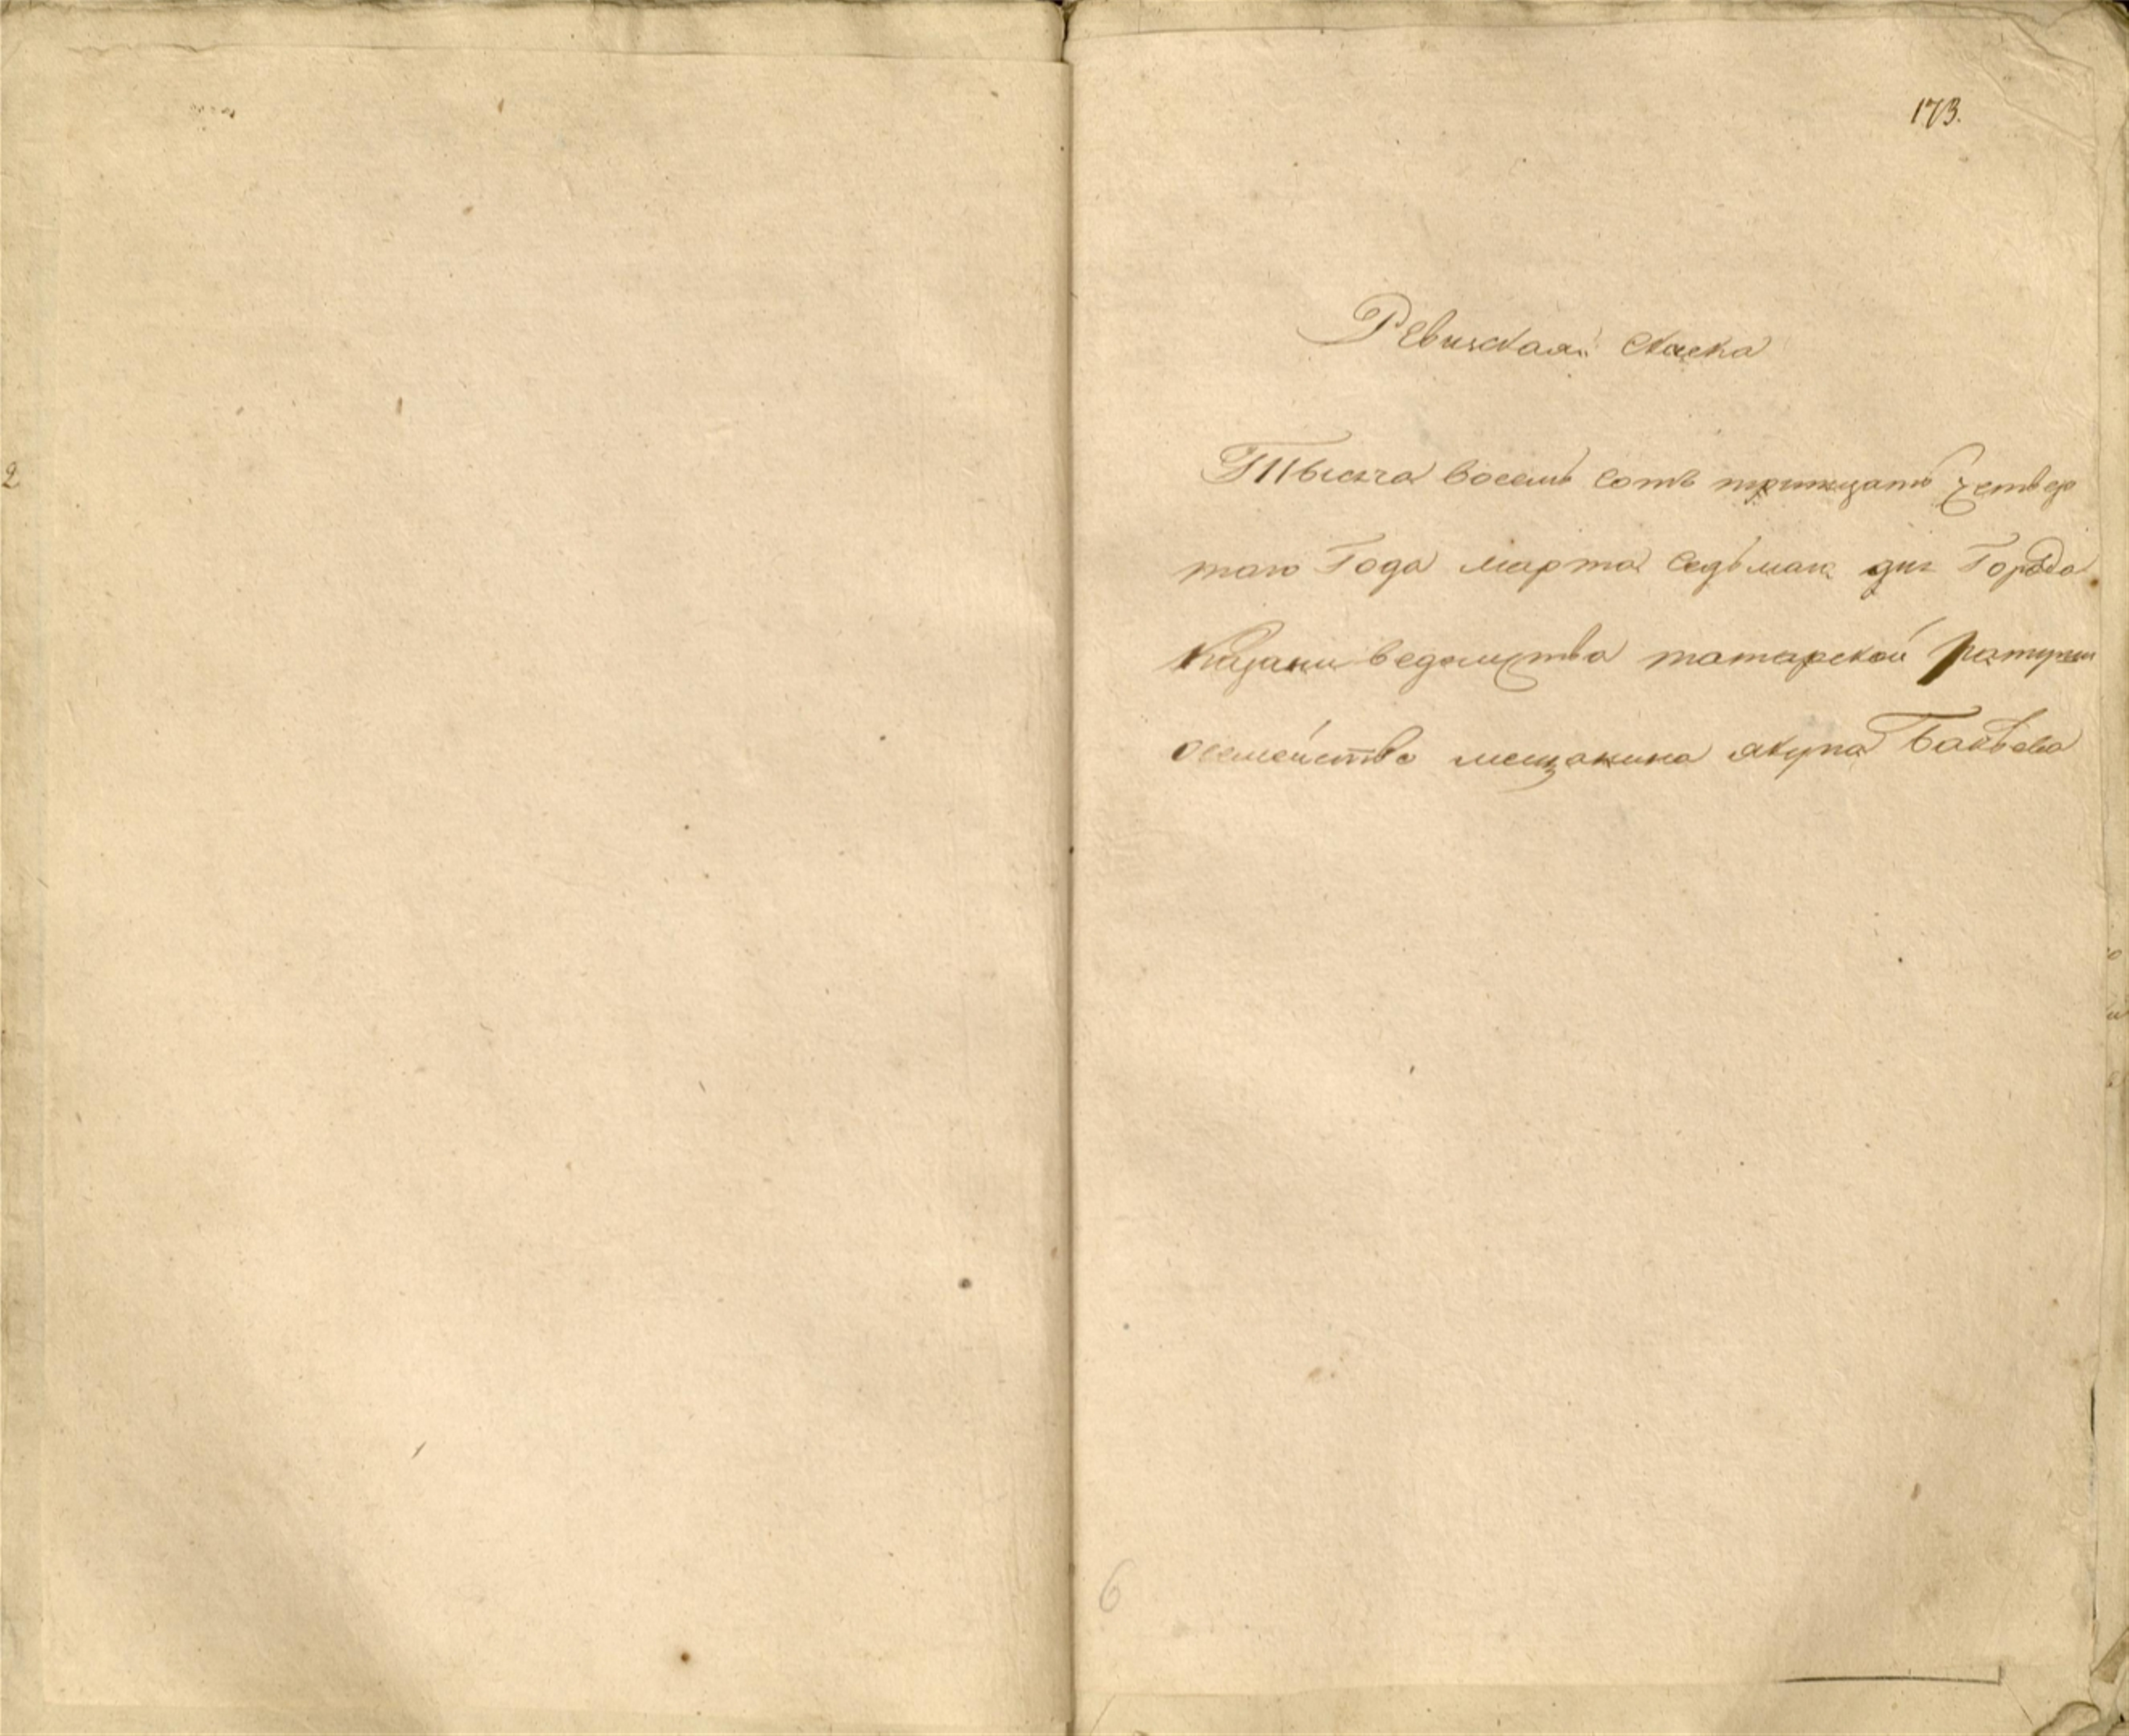 2
173.
Ревизская сказка
Тысяча восемь сотъ тритцать четвер
таго Года марта седьмаго дня Города
Казани ведомства татарской ратуши
о семействе мещанина якупа
6